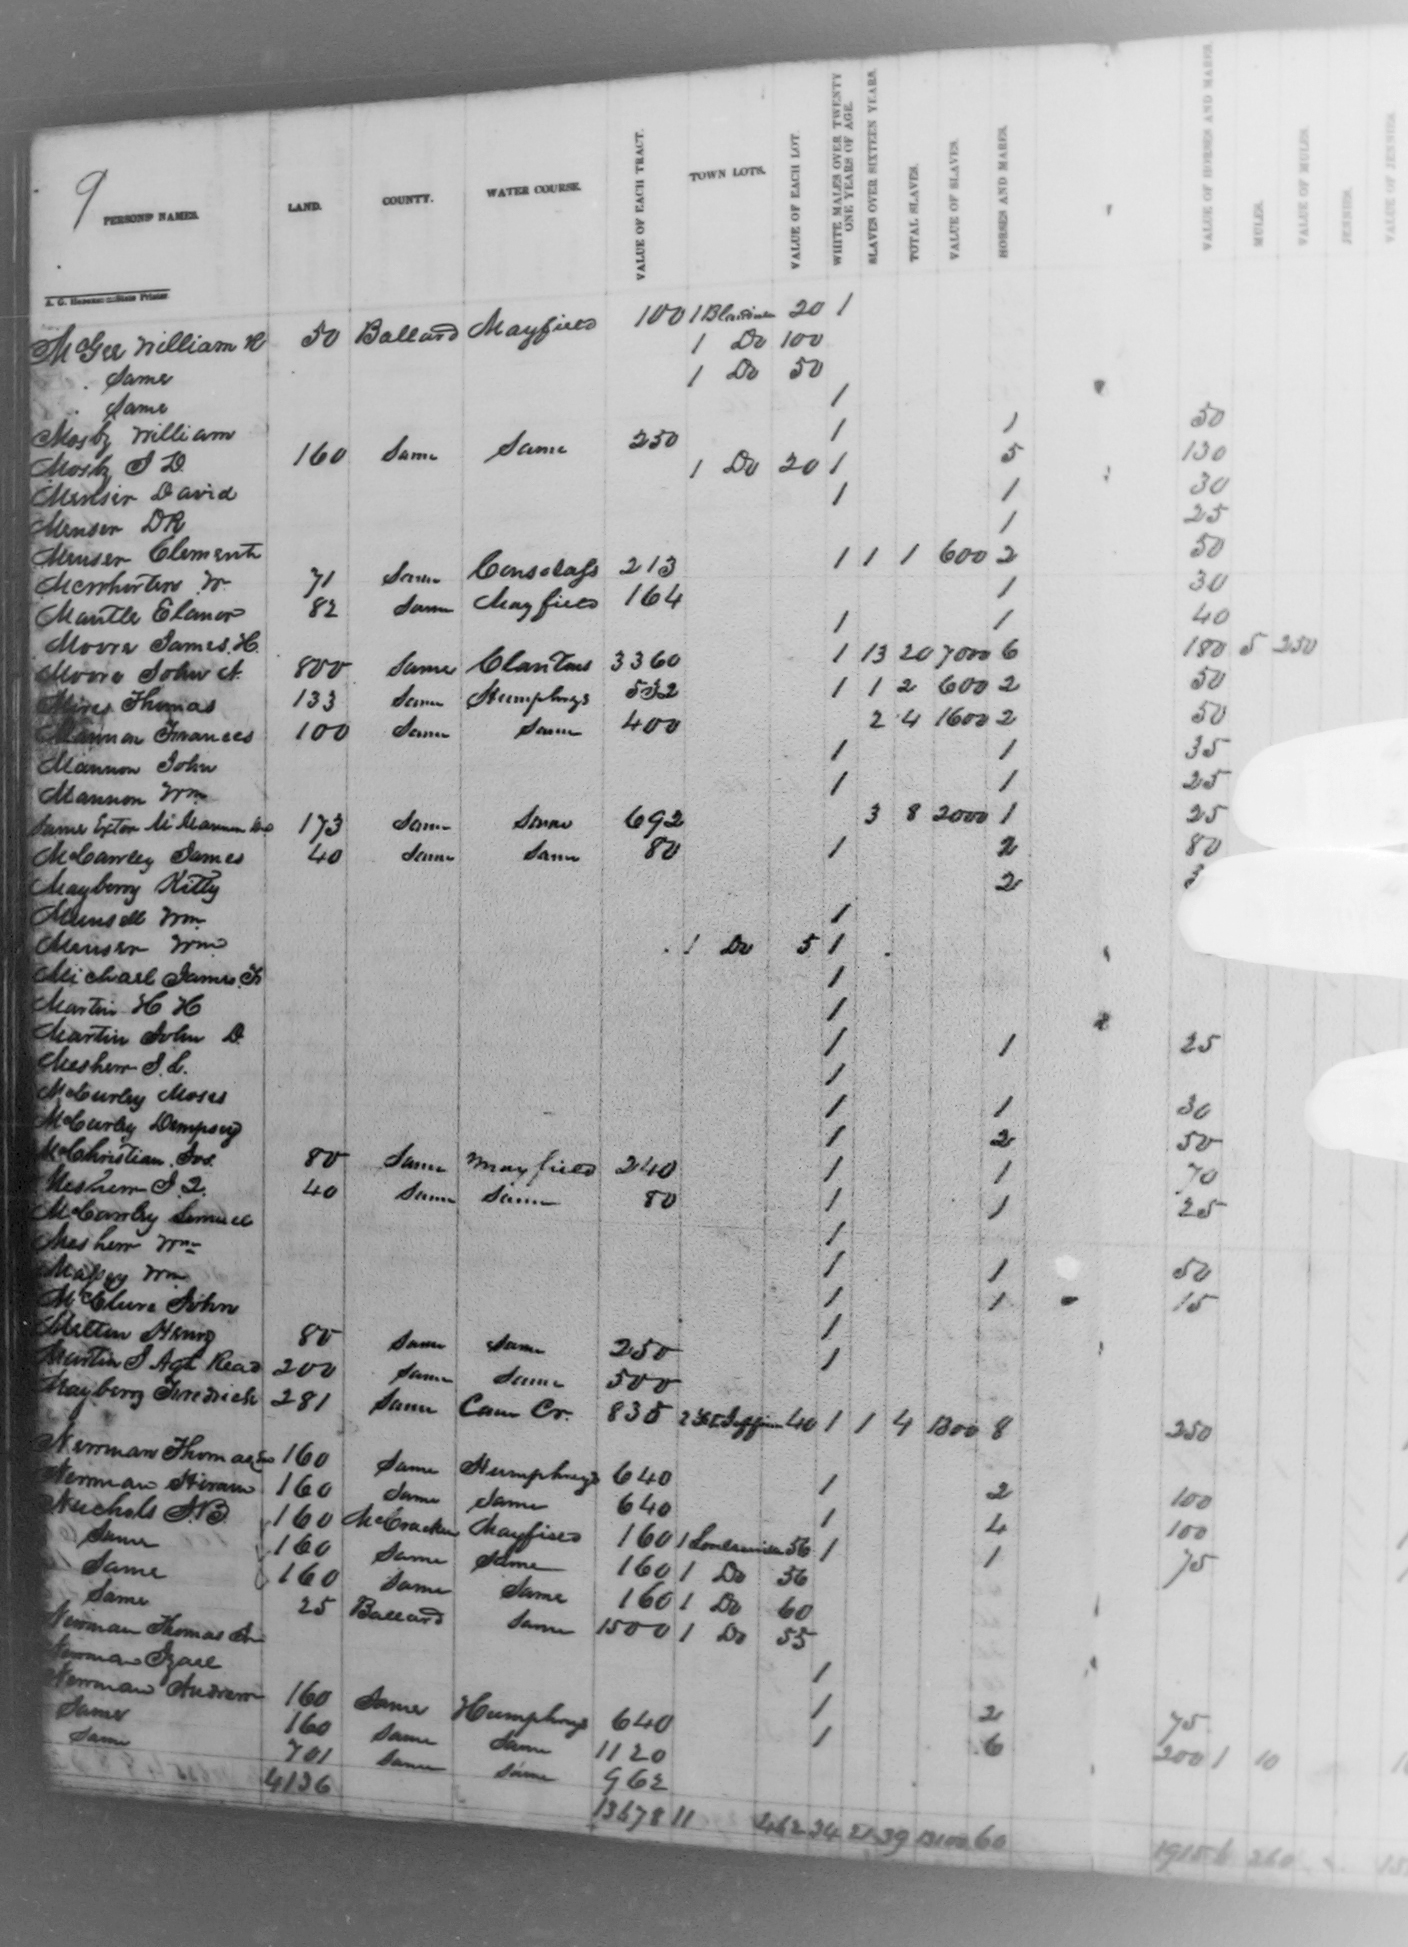 9
PERSONS' NAMES. LAND. COUNTY. WATER COURSE. VALUE OF EACH TRACT. TOWN LOTS. VALUE OF EACH LOT. WHITE MALES OVER TWENTY ONE YEARS OF AGE. SLAVES OVER SIXTEEN YEARS. TOTAL SLAVES. VALUE OF SLAVES. HORSES AND MARES. VALUE OF HORSES AND MARES. MULES. VALUE OF MULES. JENNIES. VALUE OF JENNIES
A. G. State Printer
McGee William 50 Ballard Mayfield 100 1 20 1
Same 1 Do 100
Same 1 Do 50
Mosby William 1
Mosby J D 160 Same Same 250 1 1 50
Menser David 1 Do 20 1 5 130
Menser DR 1 1 30
Menser Clement 1 25
W. 71 Same 213 1 1 1 600 2 50
Mantle Elanor 82 Same Mayfield 164 1 30
Moore James H. 1 1 40
Moore John A. 800 Same Clantons 3360 1 13 20 7000 6 180 5 250
Mires Thomas 133 Same Humphreys 532 1 1 2 600 2 50
Mannon Frances 100 Same Same 400 2 4 1600 2 50
Mannon John 1 1 35
Mannon Wm 1 1 25
Same Extor 173 Same Same 692 3 8 2000 1 25
McCawley James 40 Same Same 80 1 2 80
Mayberry Kitty 2
Munsell Wm 1
Menser Wm 1 Do 5 1
Michael James F 1
Martin H H 1
Martin John D. 1 1 25
Meshew J. L. 1
McCurley Moses 1 1 30
McCurley Dempsey 1 2 50
McChristian Jos. 80 Same Mayfield 240 1 1 70
Meshew J. Q. 40 Same Same 80 1 1 25
McCawley Samuel 1
Meshew Wm 1 1 50
Massey Wm 1 1 15
McClure John 1
Melton Henry 80 Same Same 250 1
Martin J Agt Read 200 Same Same 500
Mayberry Fredrick 281 Same Cane Cr. 835 2 40 1 1 4 1300 8 250
Newman Thomas 160 Same Humphreys 640 1 2 100
Newman Hiram 160 Same Same 640 1 4 100
Nuchols J. B. 160 McCracken Mayfield 160 1 56 1 1 75
Same 160 Same Same 160 1 Do 56
Same 160 Same Same 160 1 Do 60
Same 25 Ballard Same 1500 1 Do 55
Newman Thomas 1
Newman 1 2 75
Newman Andrew 160 Same Humphreys 640 1 6 200 1 10
Same 160 Same Same 1120
Same 701 Same Same 962
4136 11 462 34 21 39 13100 60 260